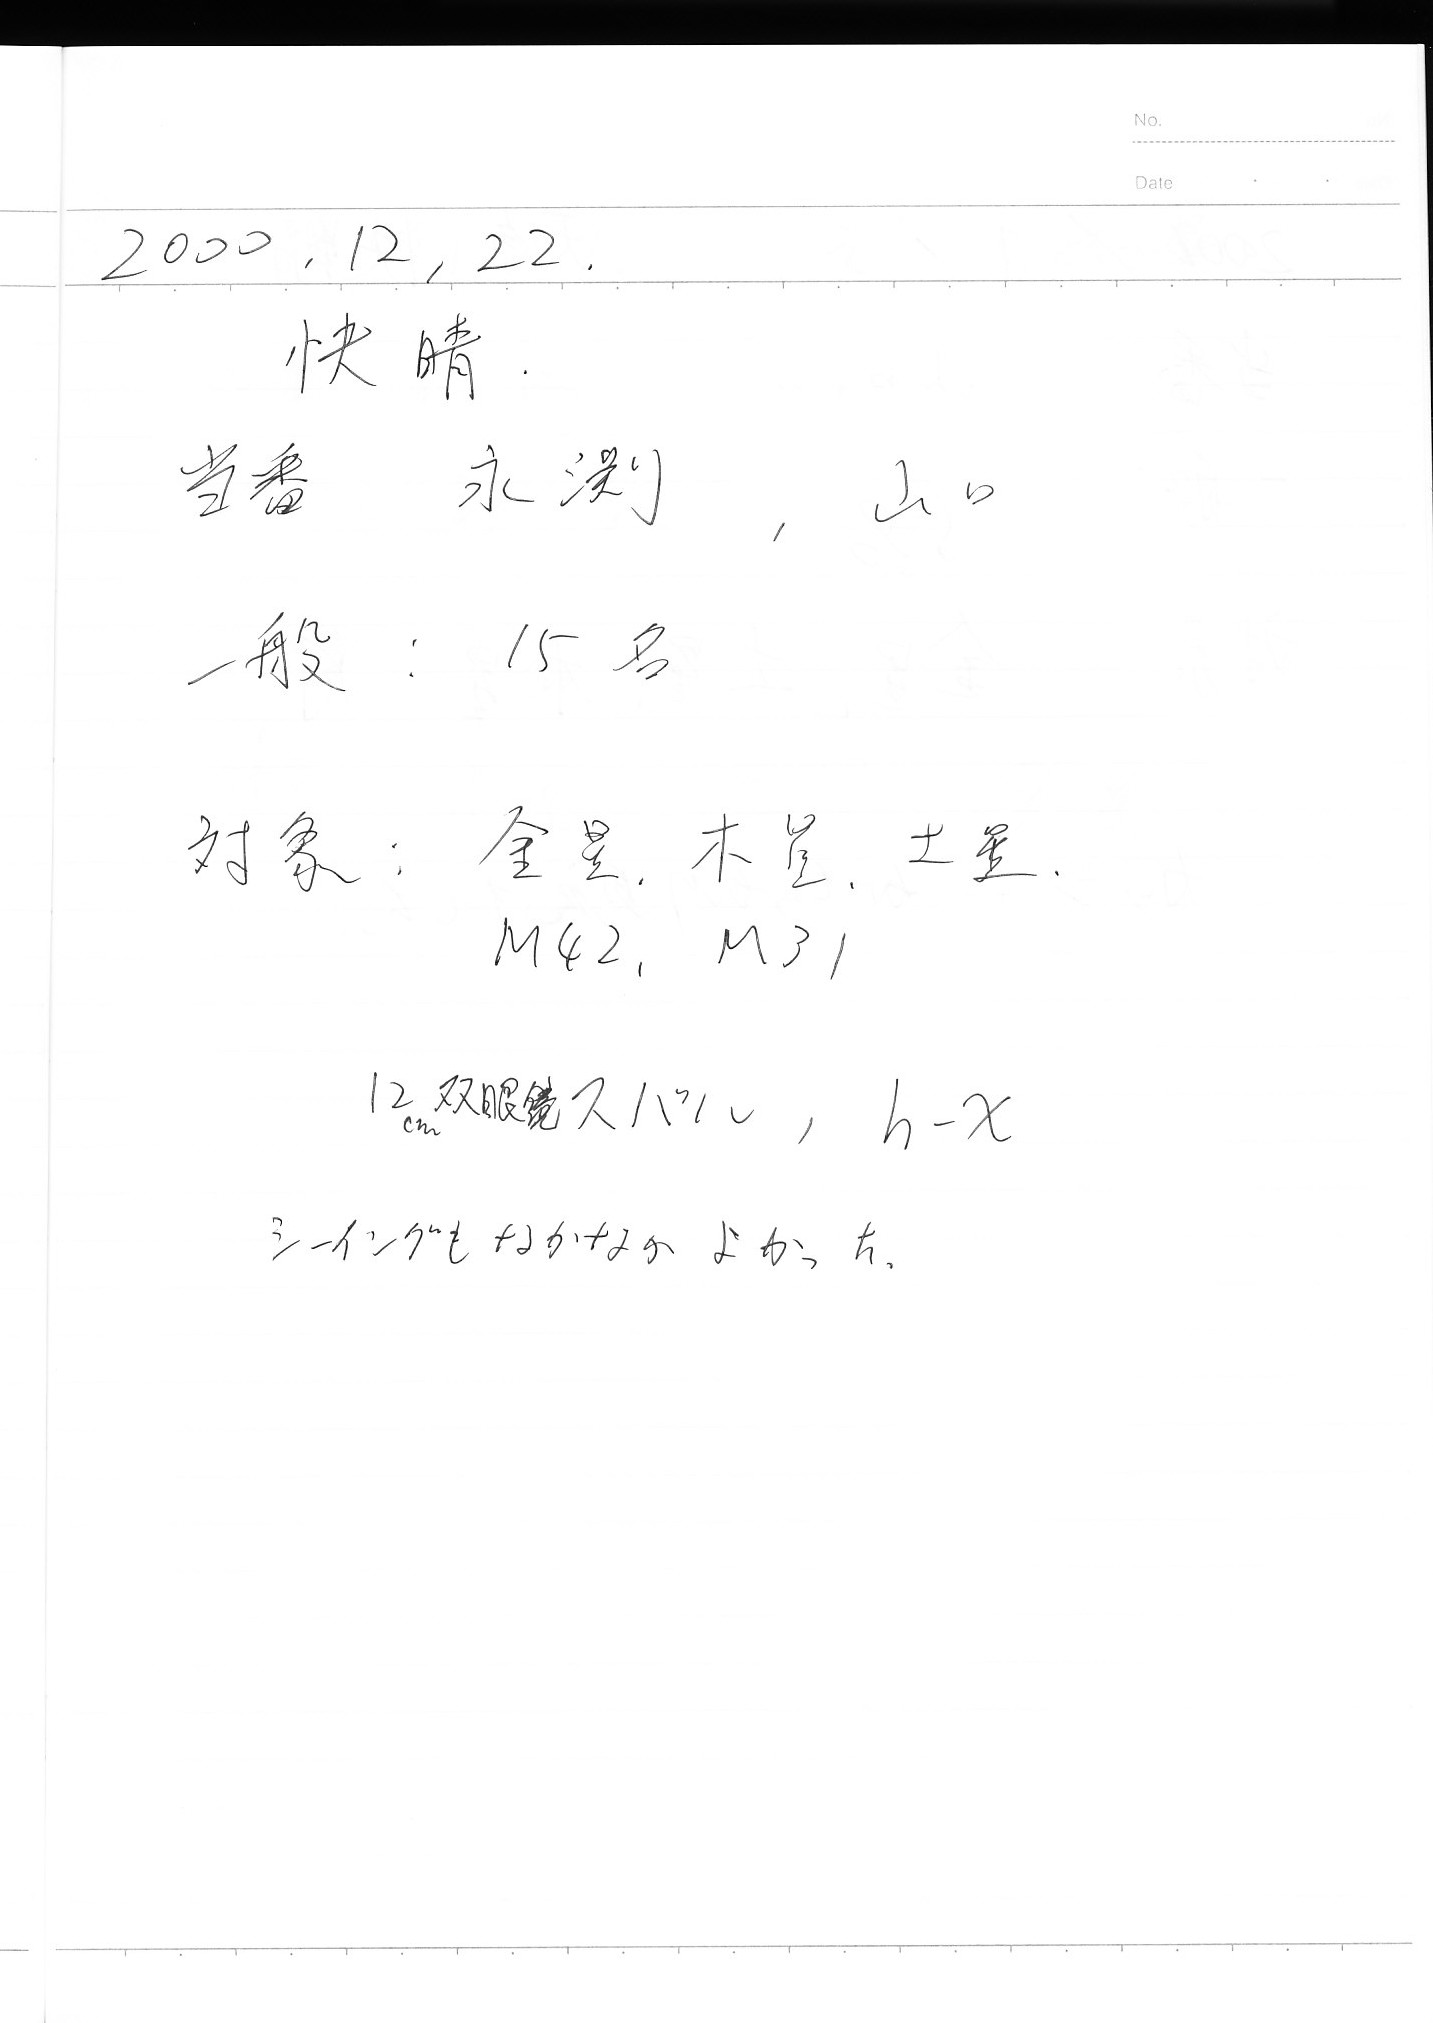 No.
Date
2000.12,22.
快晴.
当番 永渕, 山口
一般: 15名
対象: 金星. 木星. 土星.
M42, M31
12cm双眼鏡スバル, h-χ
シーイングもなかなかよかった.